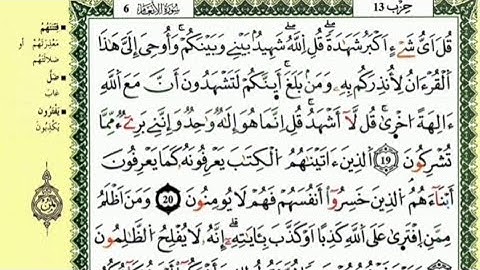 حزب 13
سورة الأنعام 6
قُلَ اَيُّ شَےْءٍ اَكْبَرُ شَهَٰدَةٗۖ قُلِ اِ۬للَّهُۖ شَهِيدُۢ بَيْنِے وَبَيْنَكُمْۖ وَأُوحِيَ إِلَيَّ هَٰذَا
اَ۬لْقُرْءَانُ لِأُنذِرَكُم بِهِۦ وَمَنۢ بَلَغَۖ أَئِنَّكُمْ لَتَشْهَدُونَ أَنَّ مَعَ اَ۬للَّهِ
ءَالِهَةً اُخْر۪يٰۖ قُل لَّآ أَشْهَدُۖ قُلِ اِنَّمَا هُوَ إِلَٰهٞ وَٰحِدٞ وَإِنَّنِے بَرِےٓءٞ مِّمَّا
تُشْرِكُونَۖ 19 اَ۬لذِينَ ءَاتَيْنَٰهُمُ اُ۬لْكِتَٰبَ يَعْرِفُونَهُۥ كَمَا يَعْرِفُونَ
أَبْنَآءَهُمُ اُ۬لذِينَ خَسِرُوٓاْ أَنفُسَهُمْ فَهُمْ لَا يُومِنُونَۖ 20 وَمَنَ اَظْلَمُ
مِمَّنِ اِ۪فْتَر۪يٰ عَلَى اَ۬للَّهِ كَذِباً اَوْ كَذَّبَ بِـَٔايَٰتِهِۦٓۖ إِنَّهُۥ لَا يُفْلِحُ اُ۬لظَّٰلِمُونَ
فتنتهم
معذرتهم أو
ضلالتهم
ضل
غاب
يفترون
يكذبون